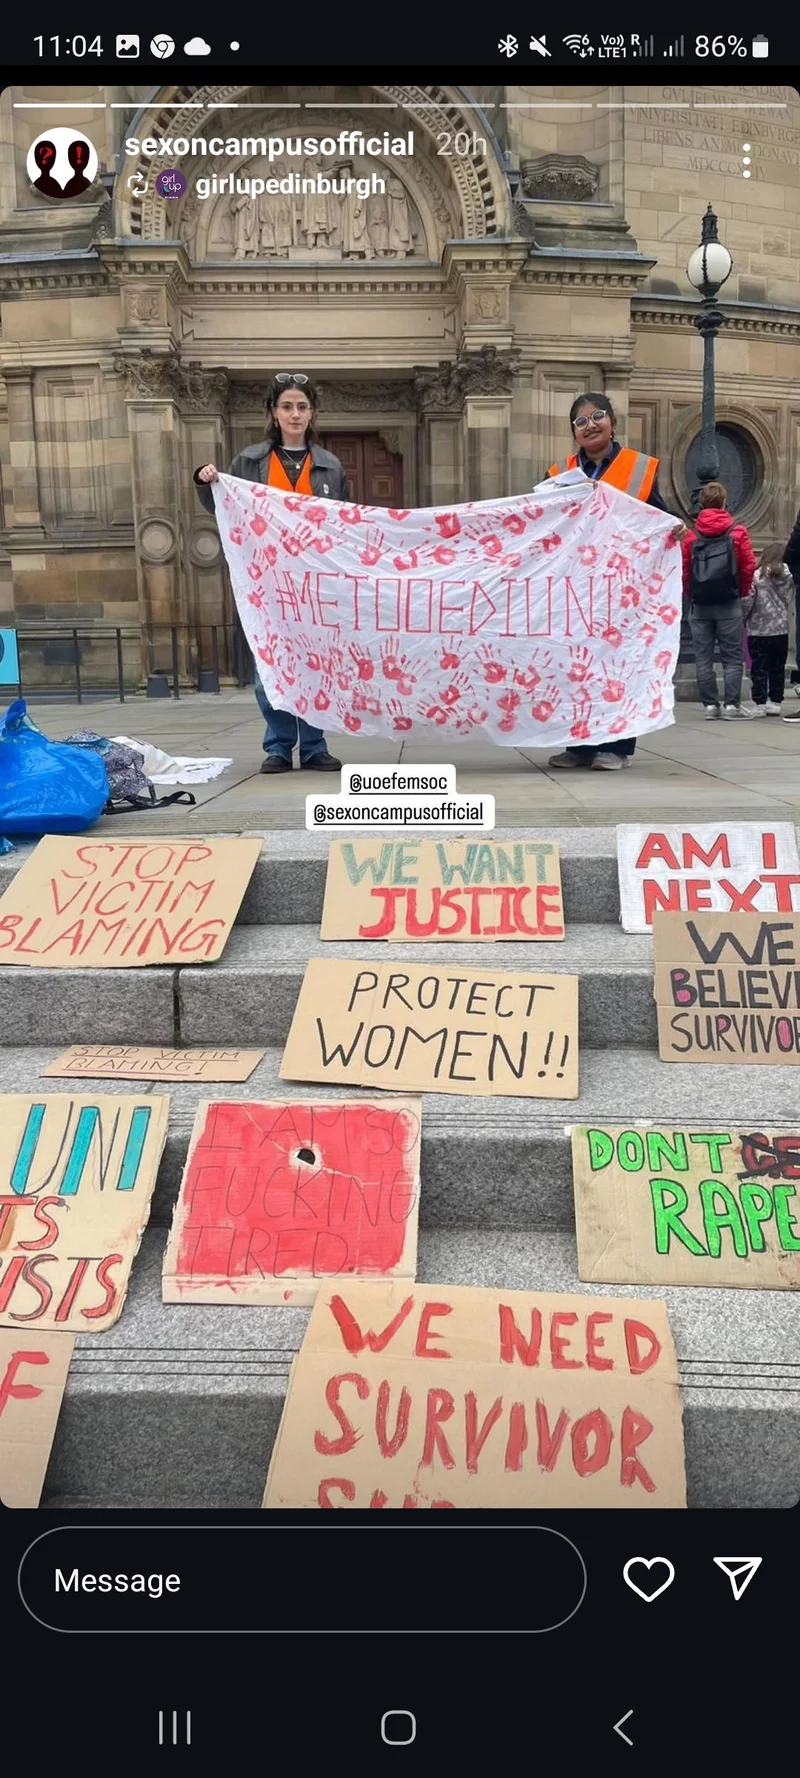 11:04
Vo)) R
LTE1
86%
sexoncampusofficial 20h
girl up girlupedinburgh
UNIVERSITATI EDINBURGE
LIBENS
#METOOEDIUNI
@uoefemsoc
@sexoncampusofficial
STOP
VICTIM
BLAMING
WE WANT
JUSTICE
AM I
NEXT
WE
BELIEVE
SURVIVO
PROTECT
WOMEN!!
STOP VICTIM
BLAMING!
UNI
TS
ISTS
I AM SO
FUCKING
TIRED
DONT
RAPE
F
WE NEED
SURVIVOR
Message